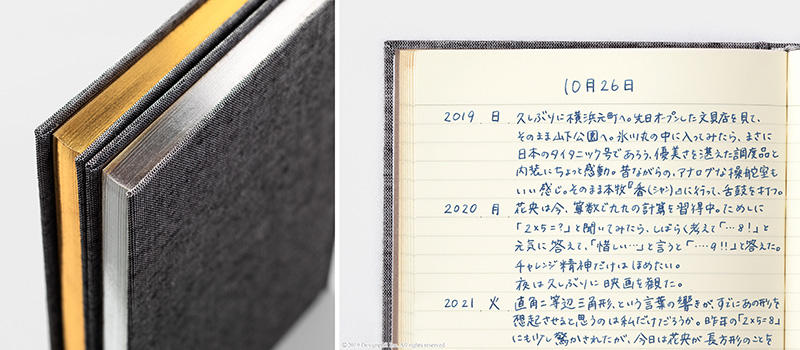 10月26日
2019 日 久しぶりに横浜元町へ。先日オープンした文具店を見て、
そのまま山下公園へ。氷川丸の中に入ってみたら、まさに
日本のタイタニック号であろう、優美さを湛えた調度品と
内装にちょっと感動。昔ながらの、アナログな操舵室も
いい感じ。そのまま本牧『香(シャン)』に行って、舌鼓を打つ。
2020 月 花央は今、算数で九九の計算を習得中。ためしに
「2×5=?」と聞いてみたら、しばらく考えて「…8!」と
元気に答えて、「惜しい…」と言うと「‥‥9!!」と答えた。
チャレンジ精神だけはほめたい。
夜は久しぶりに映画を観た。
2021 火 直角二等辺三角形、という言葉の響きが、すでにあの形を
想起させると思うのは私だけだろうか。昨年の「2×5=8」
にも少し驚かされたが、今日は花央が長方形のことを
© 2019 Designphil Inc. All rights reserved.